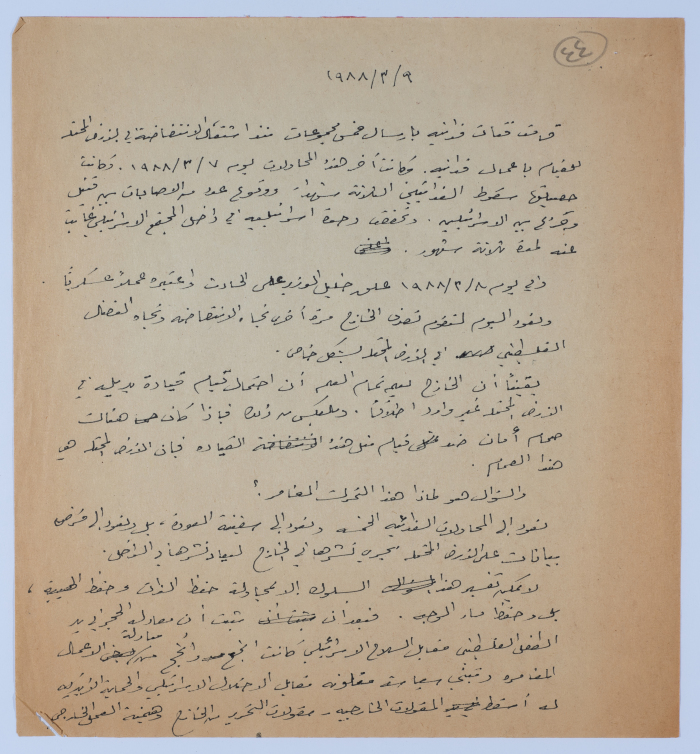 ٤٤
١٩٨٨/٣/٩
قامت فئات فدائيه بارسال خمس مجموعات منذ اشتعال الانتفاضة في الارض المحتله
للقيام باعمال فدائيه. وكانت آخر هذه المحاولات يوم ١٩٨٨/٣/٧. وكانت
حصيلتها سقوط الفدائيين الثلاثة شهداء ووقوع عدد من الاصابات بين قتيل
وجريح بين الاسرائيليين. وتحققت وحدة اسرائيلية في داخل المجتمع الاسرائيلي غابت
عنه لمدة ثلاثة شهور.
وفي يوم ١٩٨٨/٣/٨ علق خليل الوزير على الحادث واعتبره عملاً عسكرياً.
ونعود اليوم لنقوم تصرف الخارج مرة أخرى تجاه الانتفاضه وتجاه النضال
الفلسطيني في الارض المحتله بشكل خاص.
يقيناً أن الخارج يعلم تمام العلم أن احتمال قيام قيادة بديله في
الارض المحتله غير وارد اطلاقاً. وبالعكس من ذلك فإذا كان هنالك
صمام أمان ضد قيام مثل هذه القياده فإن الارض المحتله هي
هذا الصمام.
والسؤال هو لماذا هذا التحرك المغامر؟
نعود إلى المحاولات الفدائيه الخمسه ونعود إلى سفينة العودة، بل ونعود إلى فرض
بيانات على الارض المحتله يجري نشرها في الخارج ليعاد نشرها في الداخل.
لا يمكن تفسير هذا السلوك إلا بمحاولة حفظ الذات وحفظ الهيبه،
بل وحفظ ماء الوجه. فبعد أن ثبت أن معادلة الحجر في يد
الطفل الفلسطيني مقابل السلاح الاسرائيلي كانت أنجح وأنجح من معادلة الاعمال
المغامره وتبني سياسة مقابل الاحتلال الاسرائيلي
له أسقط المقولات الخارجيه، مقولات التحرير من الخارج وهيمنة العمل الخارجي